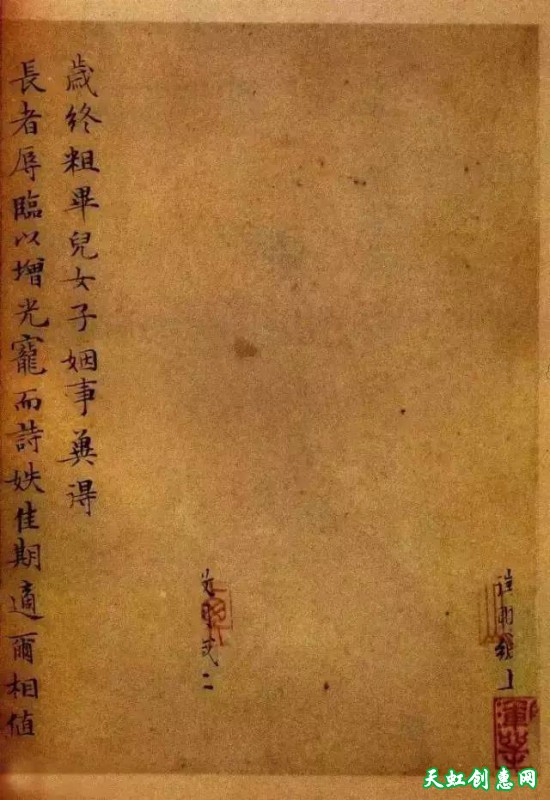 歲終粗畢兒女子姻事冀得
長者辱臨以增光寵而詩妷佳期適爾相值
天虹创惠网